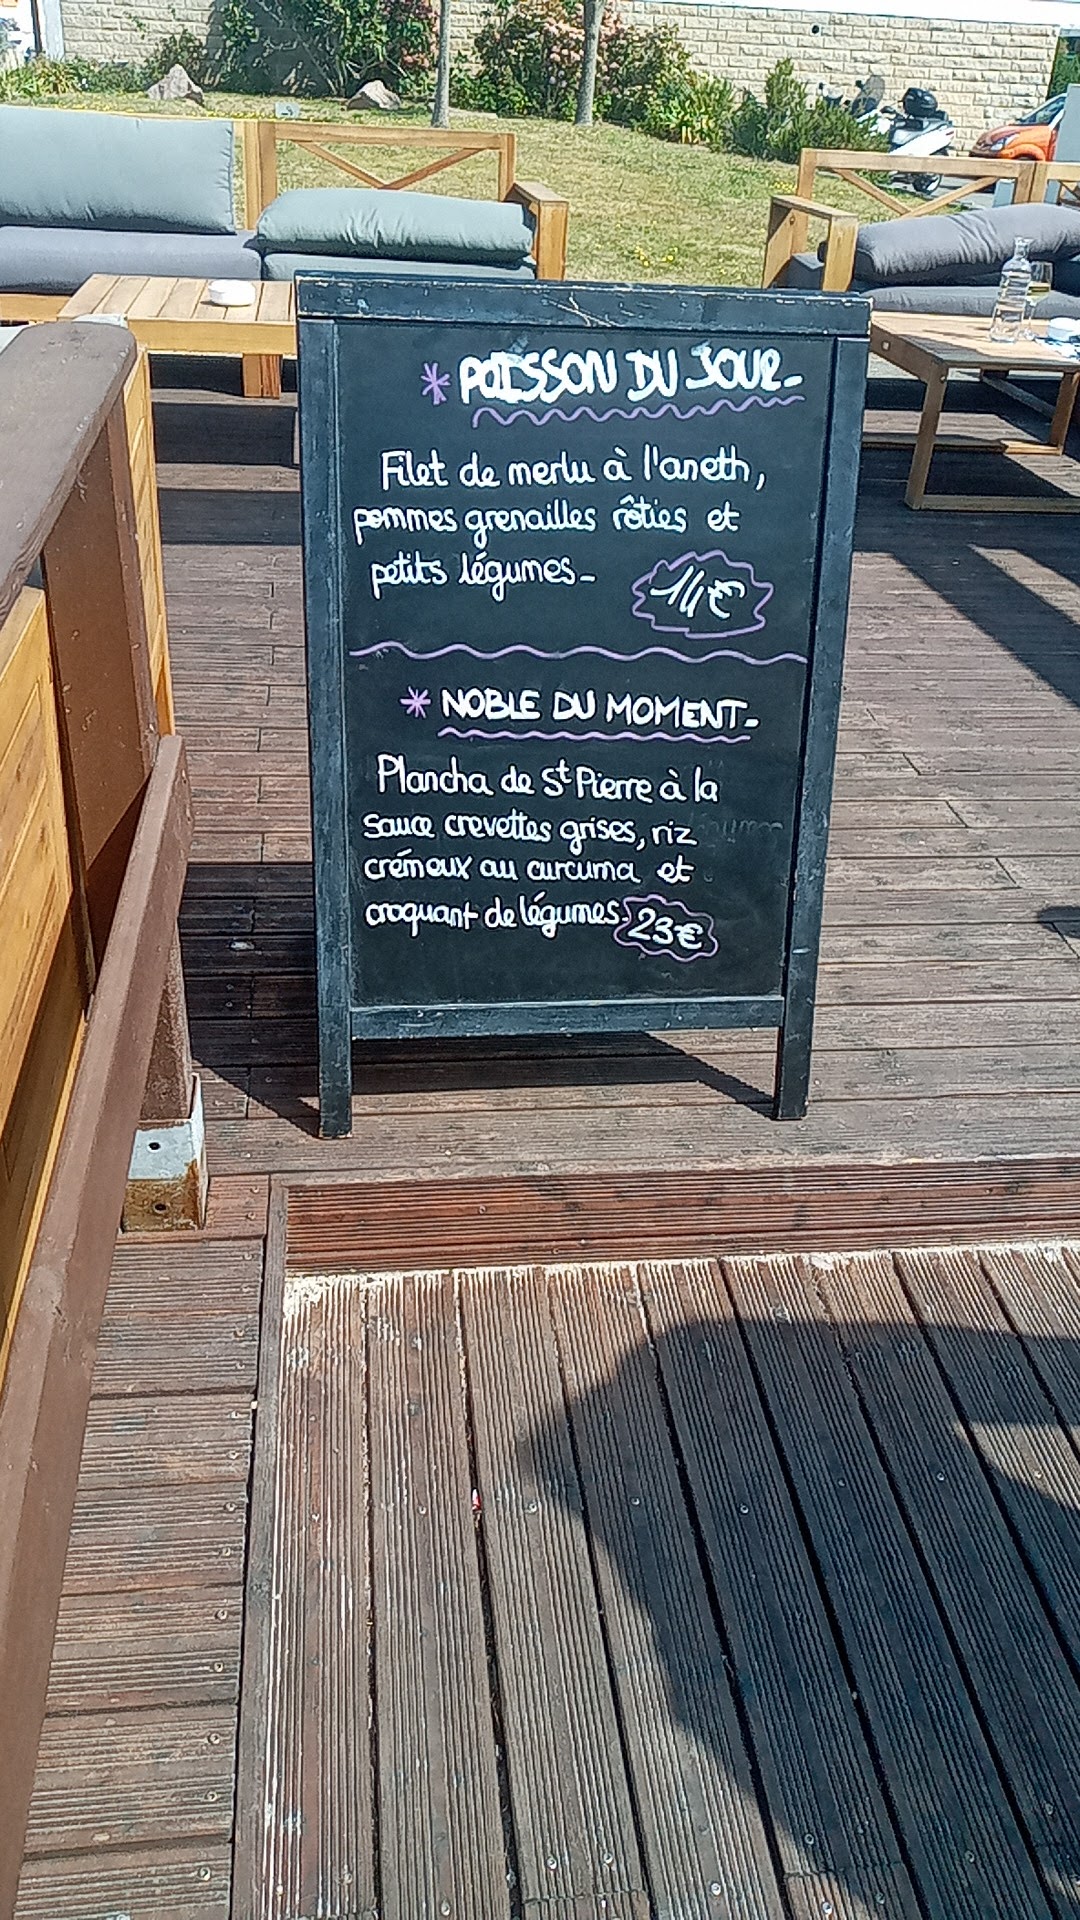 * POISSON DU JOUR_
Filet de merlu à l'aneth,
pommes grenailles rôties et
petits légumes_
14€
* NOBLE DU MOMENT_
Plancha de St Pierre à la
sauce crevettes grises, riz
crémeux au curcuma et
croquant de légumes.
23€